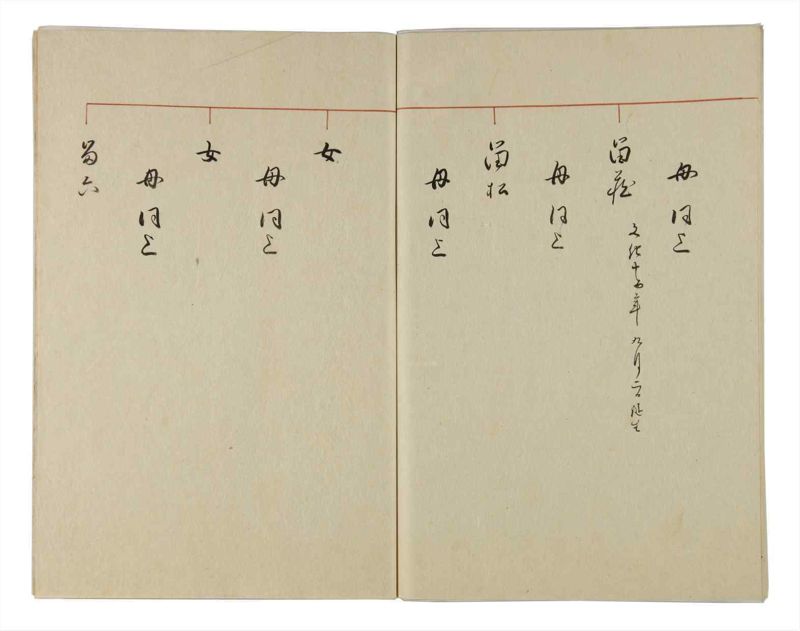 母同上
留蔵
文化十四年九月 誕生
母同上
留松
母同上
女
母同上
女
母同上
留六